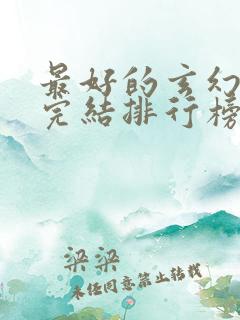 最好的玄幻
完結排行榜
梁梁
未任同意禁止转载